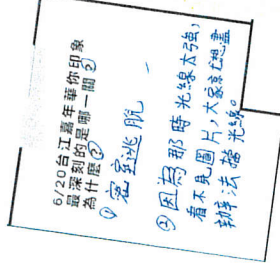 6/20台江嘉年華你印象
最深刻的是哪一關②
為什麼②
①密室逃脫
②因為那時光線太強,
看不見圖片,大家就想盡
辦法擋光線。